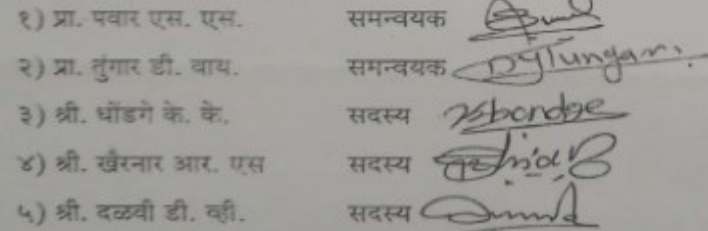 १) प्रा. पवार एस. एस. समन्वयक
२) प्रा. तुंगार डी. वाय. समन्वयक DyTungar.
३) श्री. धोंडगे के. के. सदस्य
४) श्री. खैरनार आर. एस सदस्य
५) श्री. दळवी डी. व्ही. सदस्य